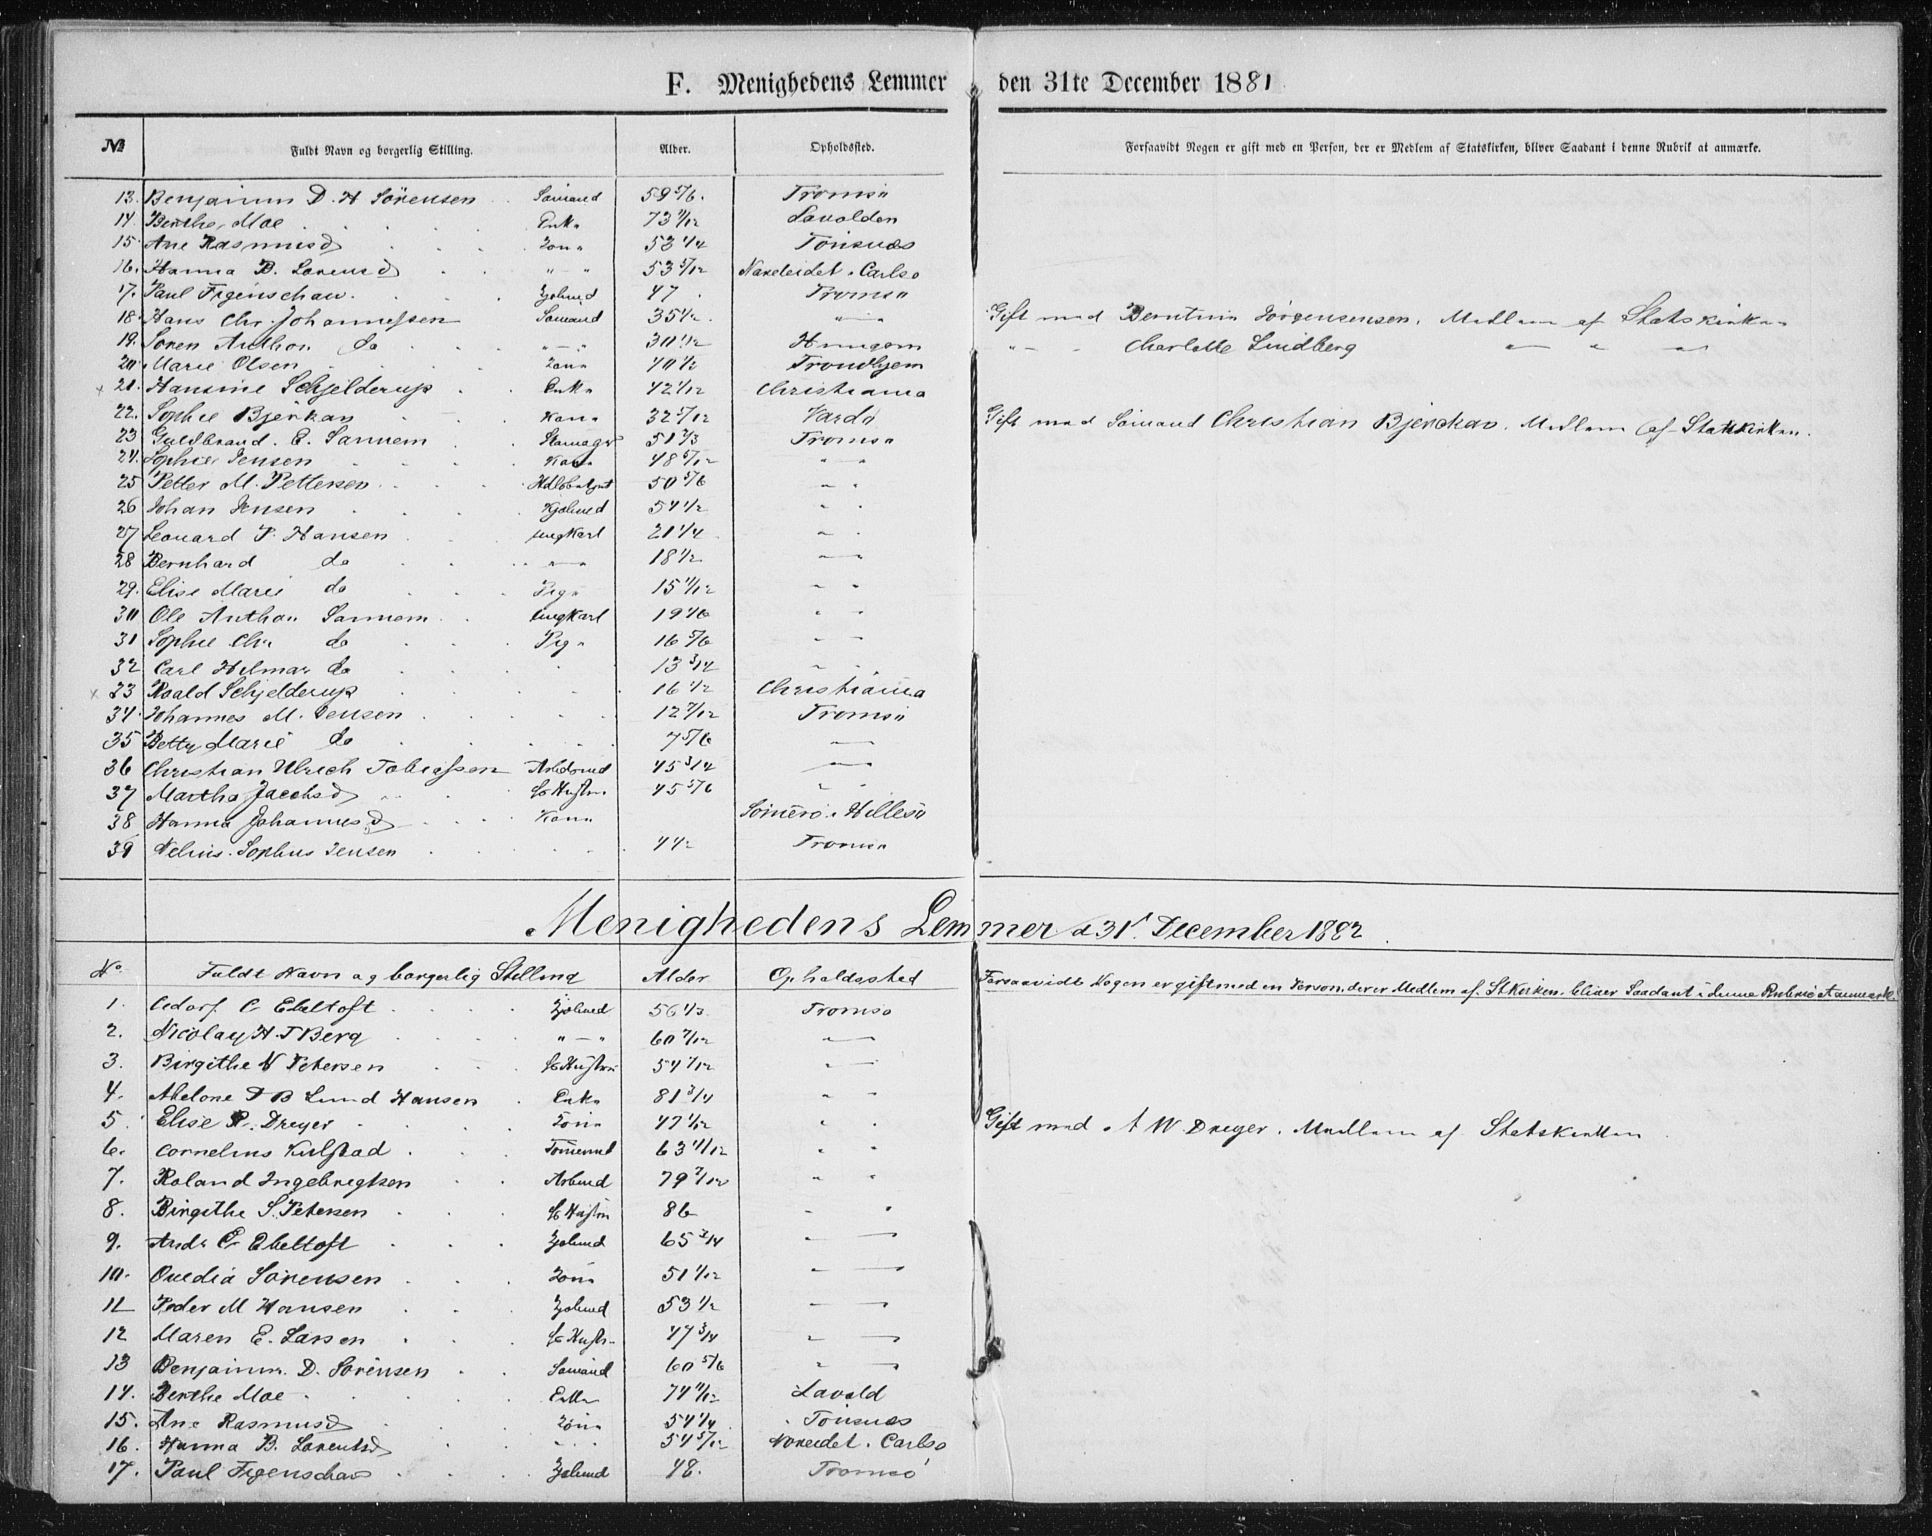 F. Menighedens Lemmer den 31te December 1881
№ Fuldt Navn og borgerlig Stilling. Alder. Opholdssted. Forsaavidt Nogen er gift med en Person, der er Medlem af Statskirken, bliver Saadant i denne Rubrik at anmærke.
13. Benjamin D. H Sörensen Sömand 59 5/6. Tromsö
14. Berthe Moe Enke 73 11/12 Lavolden
15. Ane Rasmusd Kone 53 1/4 Tönsnæs
16. Hanna B. Lorensd " — " 53 5/12 Carlsö
17. Paul Figenschau. 47 Tromsö
18. Hans Chr. Johannessen Sömand 35 1/2 " — " Gift med Jörgensensen. Medlem af Statskirken
19. Sören Anthon do " — " 30 11/12 " — " Charlotte Lindberg " " "
20. Marie Olsen Kone 40 1/2 Trondhjem
x 21. Hansine Schjelderup Enke 42 1/12 Christiania
22. Sophie Bjerkan Kone 32 5/12 Vardö Gift med Sömand Christian Bjerckan. Medlem af Statskirken.
23 Guldbrand. E. Sannem 51 2/3 Tromsö
24. Sophie Jensen Kone 48 5/12 " — "
25 Petter M. Pettersen 50 5/6 " "
26 Johan Jensen 54 1/2 " "
27 Leonard P. Hansen ungkarl 21 1/4 " "
28 Bernhard do " — " 18 1/2 " — "
29. Elise Marie do Pige 15 11/12 " "
30 Ole Anthon Sannem ungkarl 19 1/6 " "
31 Sophie Chr do Pige 16 5/6 " "
32 Carl Hilmar do 13 3/4 " "
x 33 Roald Schjelderup 16 1/2 Christiania
34. Johannes M. Jensen 12 7/12 Tromsö
35 Betty Marie do 7 5/6 " — "
36 Christian Ulrich Tobiassen 45 3/4 " — "
37 Martha Jacobsd 45 5/6 " "
38 Hanna Johannesd Kone Sömerö. Hillesö
39 Nelius. Sophus Jensen Tromsö
Menighedens Lemmer d 31' December 1882
No. Fuldt Navn og borgerlig Stilling Alder Opholdssted Forsaavidt Nogen er gift med en Person, der er Medlem af StKirken. bliver Saadant i denne Rubrik at anmærk.
1. C Ebeltoft 56 1/3 Tromsö
2. Nicolay H. T Berg " — " 60 7/12 " — "
3. Birgithe N Petersen 54 7/12 " — "
4. Abelone D B Lund Hansen Enke 81 3/4 " "
5. Elise R. Dreyer Kone 47 1/12 " . Gift med A W. Dreyer. Medlem af Statskirken
6. Cornelius Kulstad Tömermd 63 11/12 " "
7. Roland Ingebregtsen Arbmd 79 7/12 " "
8. Birgithe S. Petersen 86 " "
9. Andr C. Ebeltoft 65 3/4 " — "
10. Ovedia Sörensen Kone 51 1/12 " — "
11 Peder M Hansen 53 1/2 " — "
12 Maren E. Larsen 47 3/4 " — "
13 Benjamin. D. Sörensen Sömand 60 5/6 " — "
14. Berthe Moe Enke 74 11/12 Lavold
15. Ane Rasmusd Kone 54 1/4 Tönsnæs
16. Hanna B. Lorentsd 54 5/12 Carlsö
17. Paul Figenschau 48. Tromsö